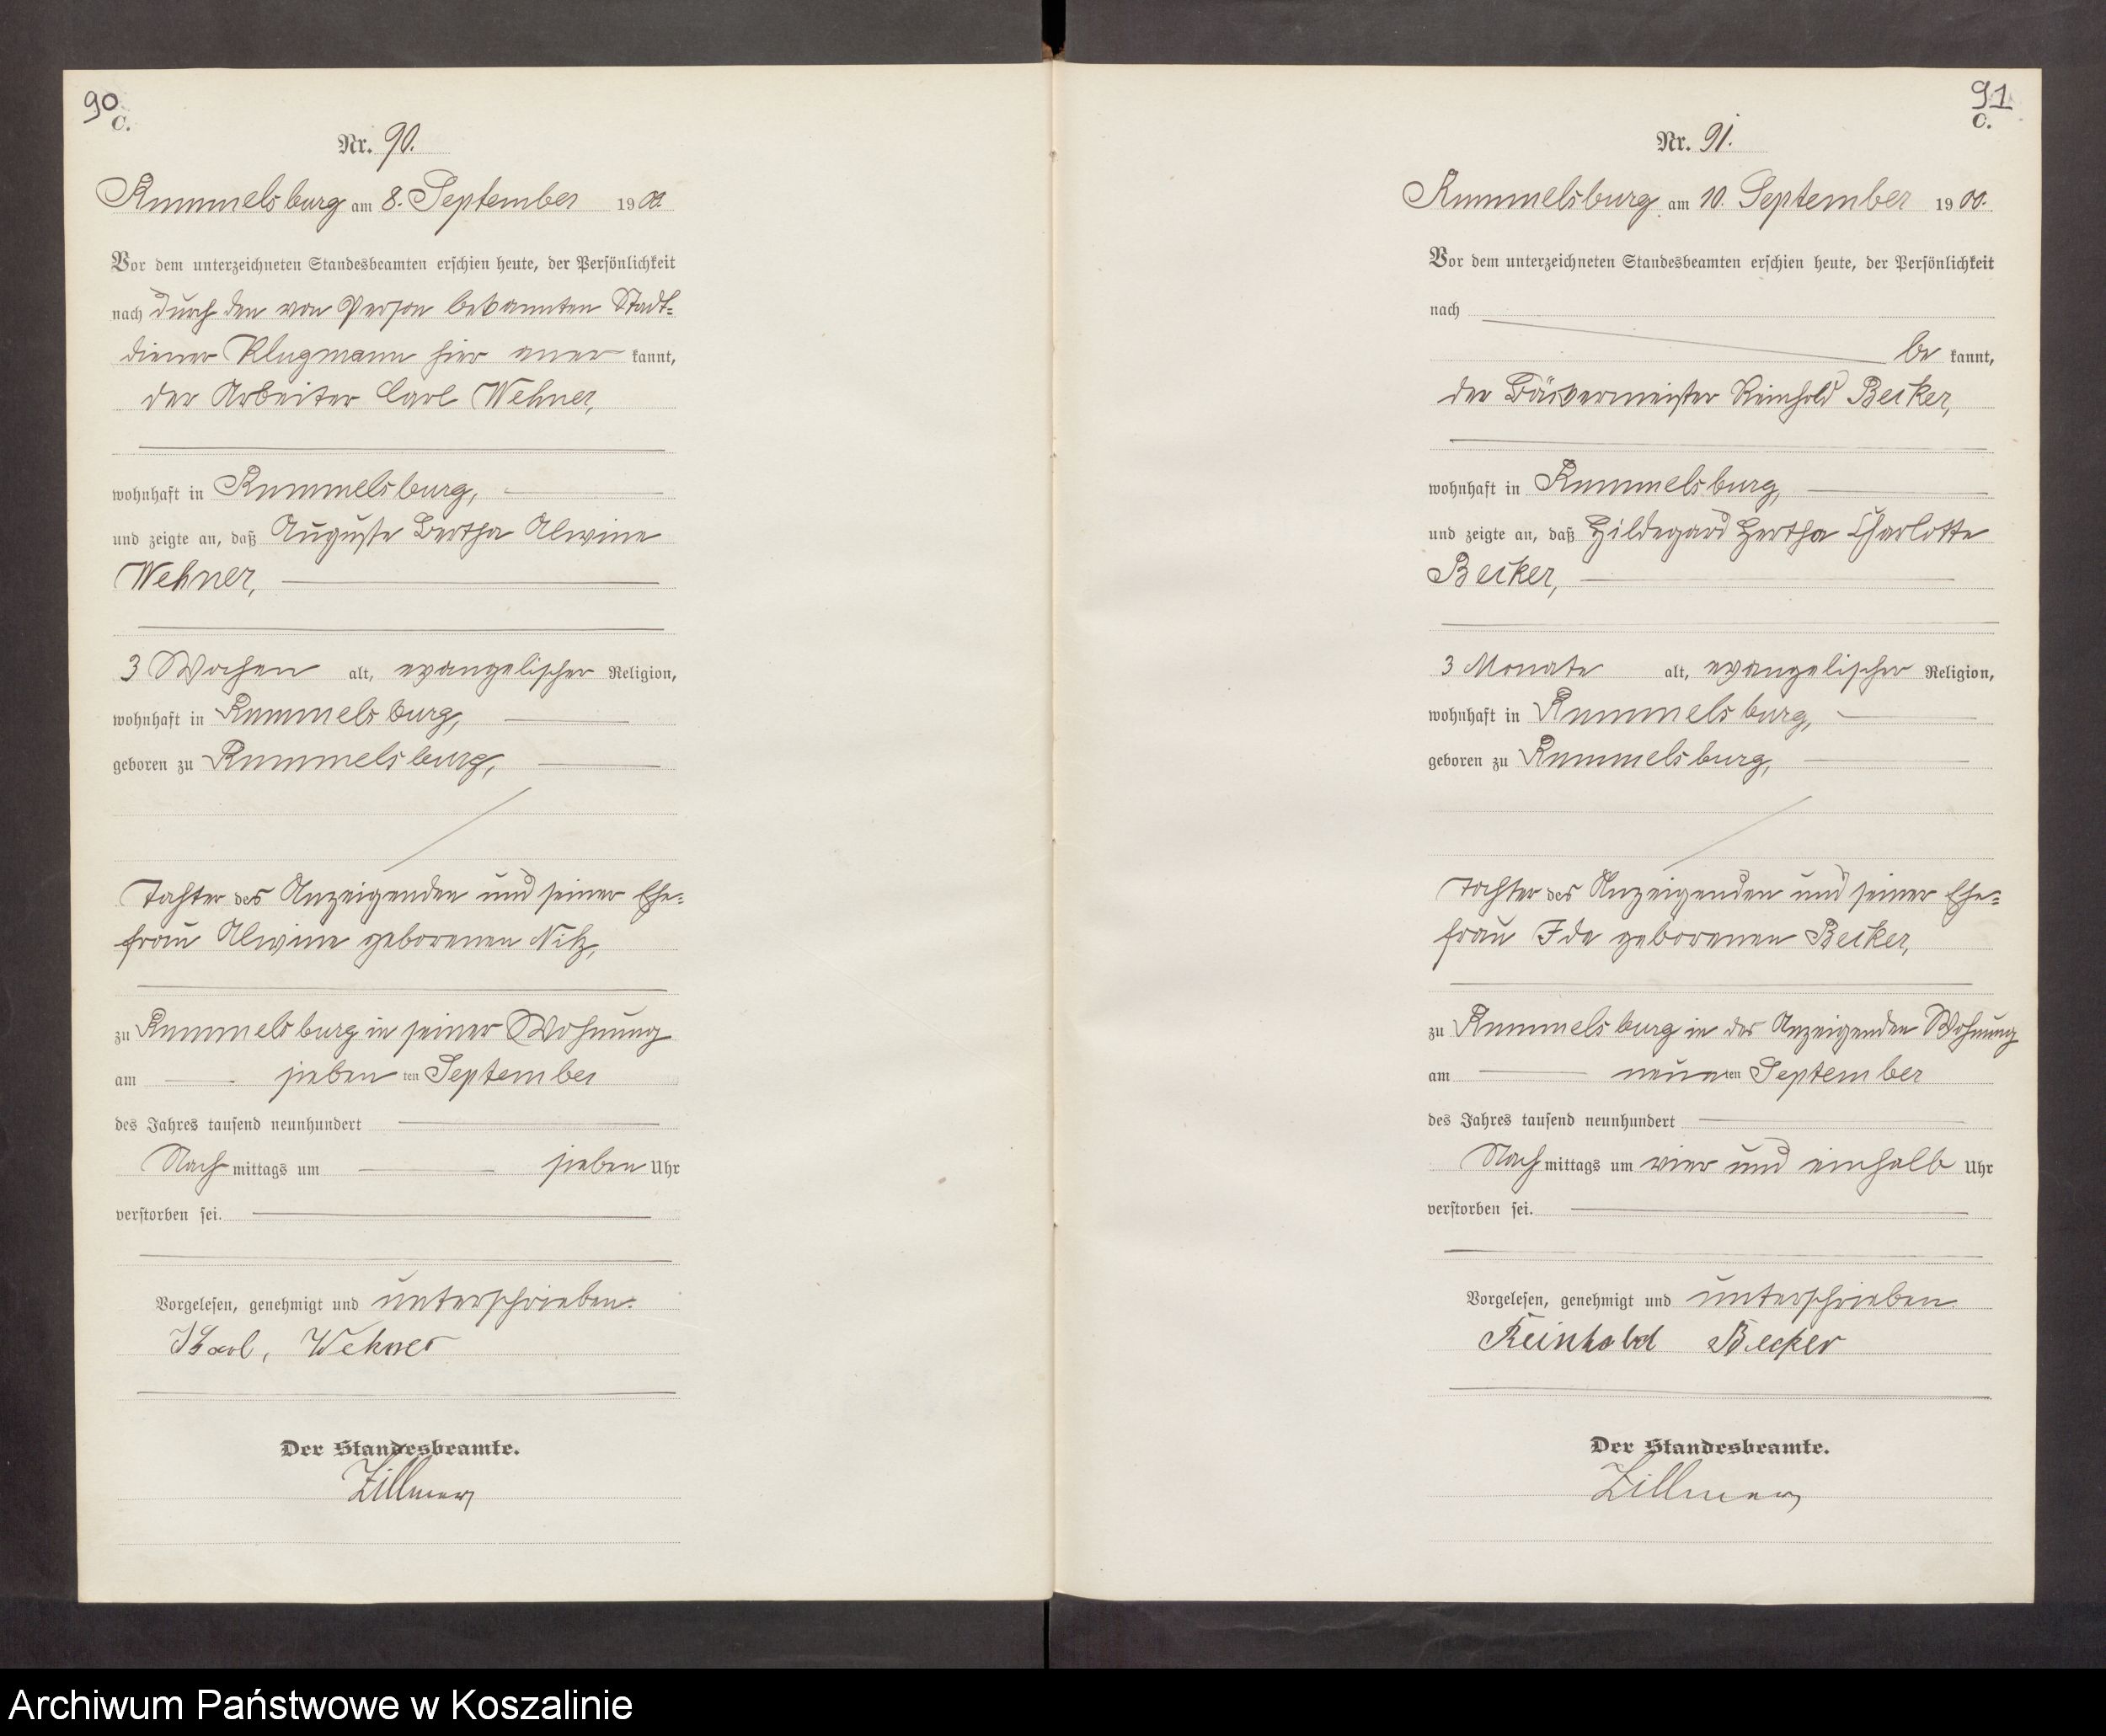 90
C.
Nr. 90.
Rummelsburg am 8. September 1900.
Vor dem unterzeichneten Standesbeamten erschien heute, der Persönlichkeit
nach durch den von Person bekannten Stadt=
diener Klugmann hier aner kannt,
der Arbeiter Carl Wehner,
wohnhaft in Rummelsburg,
und zeigte an, daß Auguste Bertha Alwine
Wehner,
3 Wochen alt, evangelischer Religion,
wohnhaft in Rummelsburg,
geboren zu Rummelsburg,
Tochter des Anzeigenden und seiner Ehe=
frau Alwine geborenen Nitz,
zu Rummelsburg in seiner Wohnung
am sieben ten September
des Jahres tausend neunhundert
Nach mittags um sieben Uhr
verstorben sei.
Vorgelesen, genehmigt und unterschrieben.
Karl, Wehner
Der Standesbeamte.
Zillmer
91
C.
Nr. 91.
Rummelsburg am 10. September 1900.
Vor dem unterzeichneten Standesbeamten erschien heute, der Persönlichkeit
nach
be kannt,
der Bäckermeister Reinhold Becker,
wohnhaft in Rummelsburg,
und zeigte an, daß Hildegard Hertha Charlotte
Becker,
3 Monate alt, evangelischer Religion,
wohnhaft in Rummelsburg,
geboren zu Rummelsburg,
Tochter des Anzeigenden und seiner Ehe=
frau Ida geborenen Becker,
zu Rummelsburg in des Anzeigenden Wohnung
am neun ten September
des Jahres tausend neunhundert
Nach mittags um vier und einhalb Uhr
verstorben sei.
Vorgelesen, genehmigt und unterschrieben
Reinhold Becker
Der Standesbeamte.
Zillmer
Archiwum Państwowe w Koszalinie